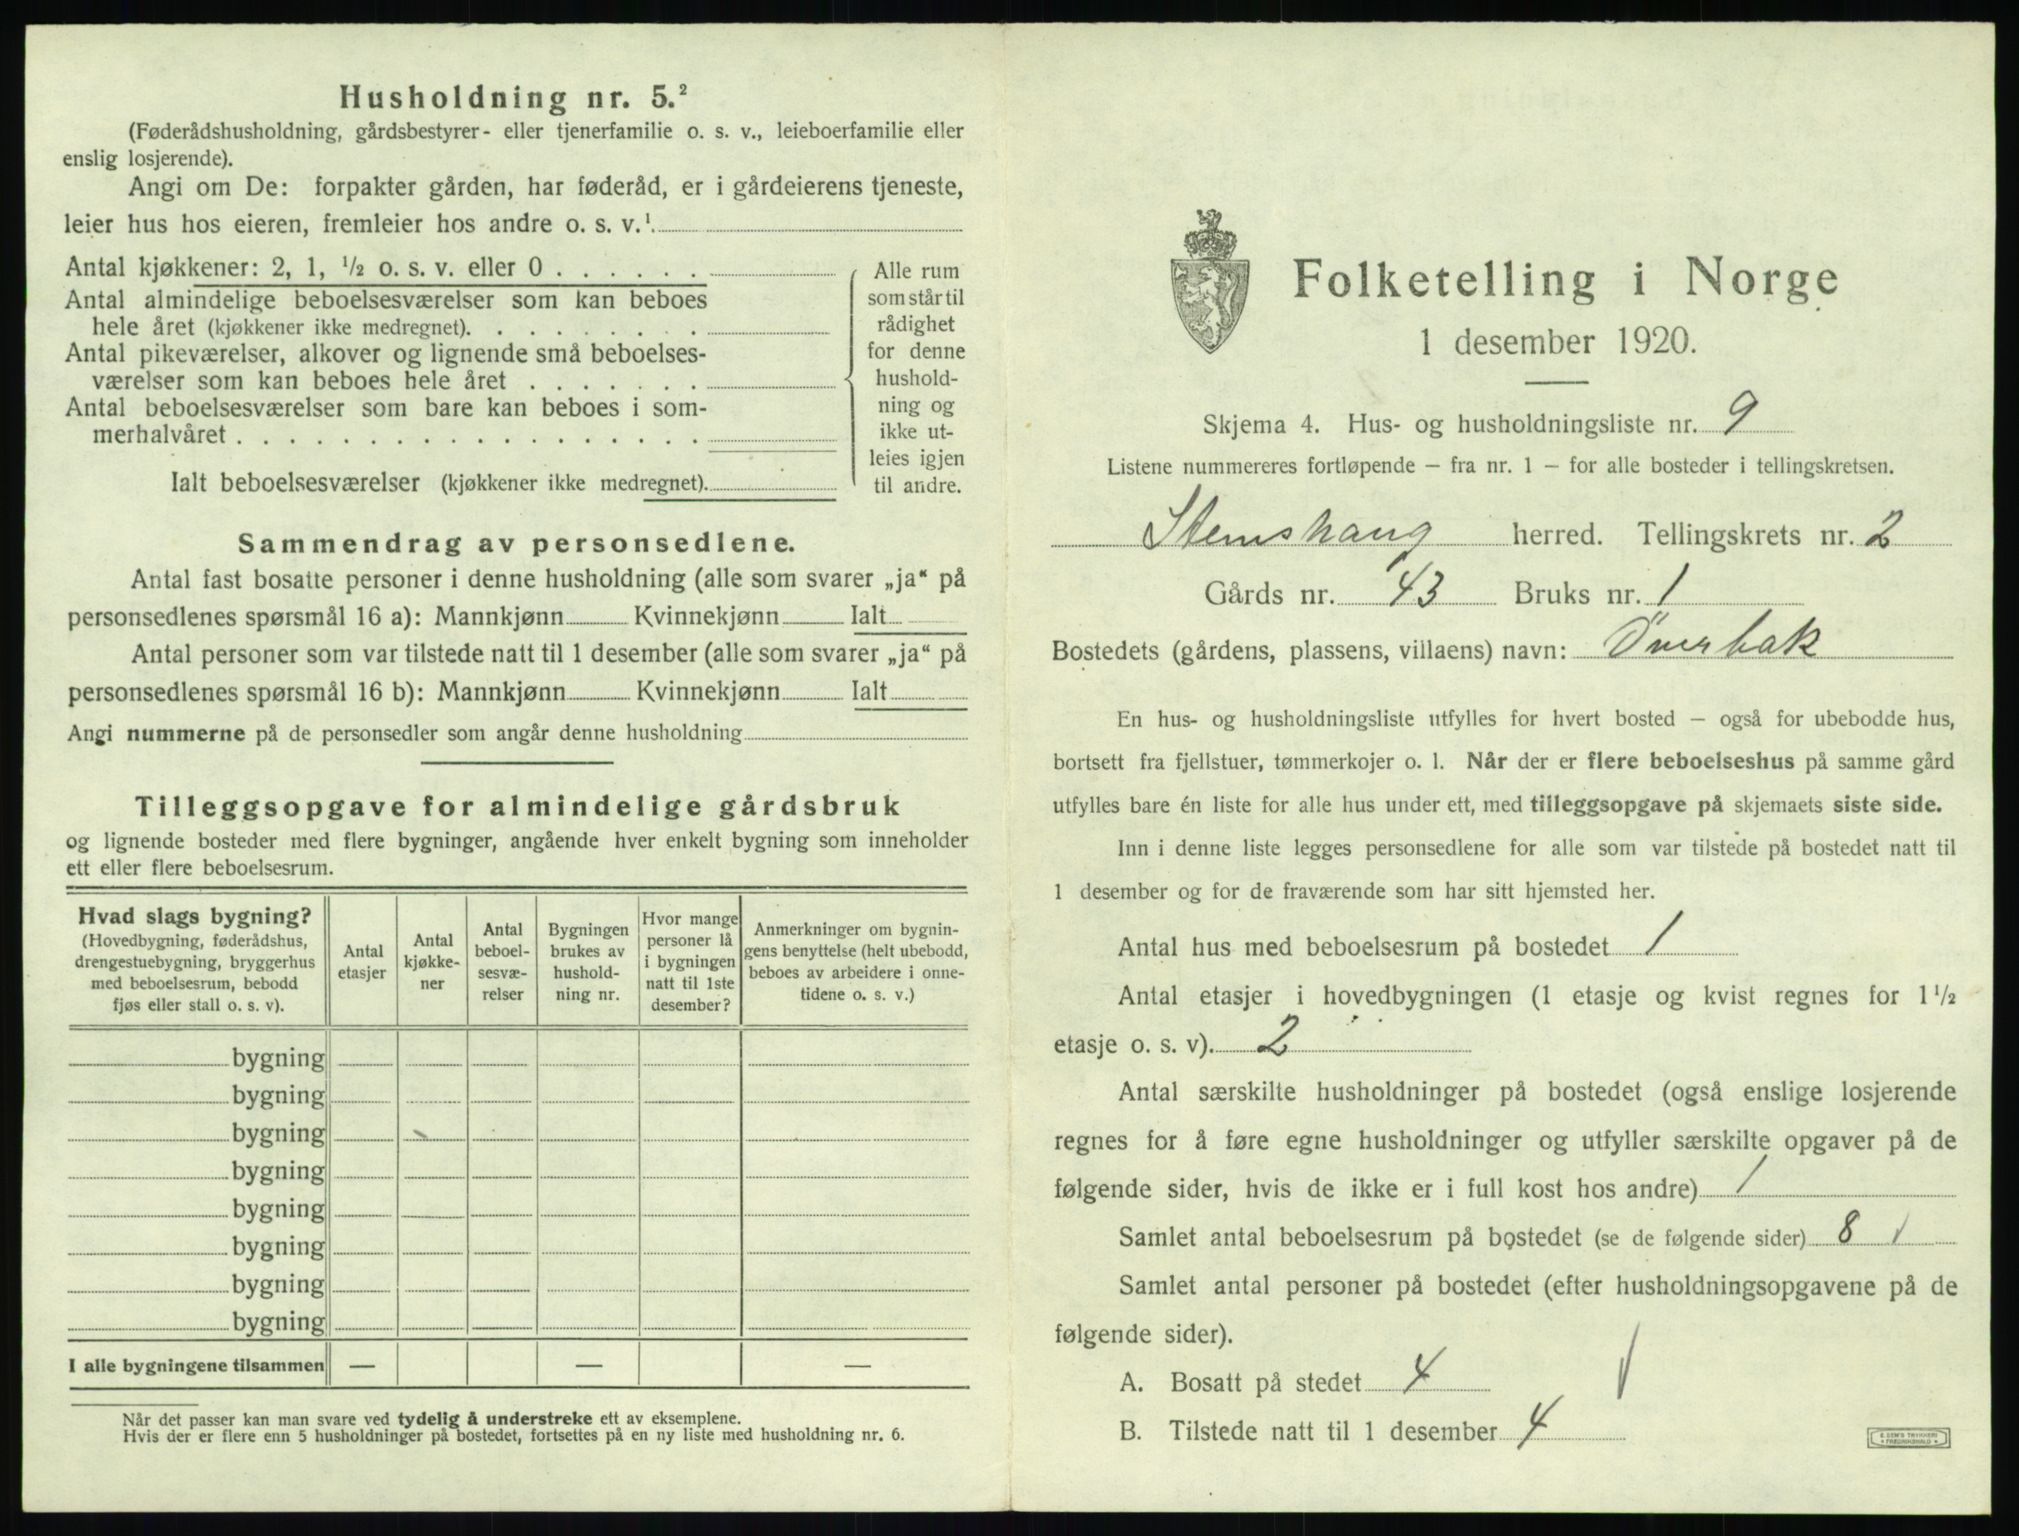 Husholdning nr. 5.²
(Føderådshusholdning, gårdsbestyrer- eller tjenerfamilie o. s. v., leieboerfamilie eller
enslig losjerende).
Angi om De: forpakter gården, har føderåd, er i gårdeierens tjeneste,
leier hus hos eieren, fremleier hos andre o. s. v.¹
Antal kjøkkener: 2, 1, ½ o. s. v. eller 0 . . . . . .
Antal almindelige beboelsesværelser som kan beboes
hele året (kjøkkener ikke medregnet). . . . . . . . .
Antal pikeværelser, alkover og lignende små beboelses-
værelser som kan beboes hele året . . . . . . .
Antal beboelsesværelser som bare kan beboes i som-
merhalvåret . . . . . . . . . . . . . . . . . .
Ialt beboelsesværelser (kjøkkener ikke medregnet).
Alle rum
som står til
rådighet
for denne
hushold-
ning og
ikke ut-
leies igjen
til andre.
Sammendrag av personsedlene.
Antal fast bosatte personer i denne husholdning (alle som svarer „ja“ på
personsedlenes spørsmål 16 a): Mannkjønn Kvinnekjønn Ialt
Antal personer som var tilstede natt til 1 desember (alle som svarer „ja“ på
personsedlenes spørsmål 16 b): Mannkjønn Kvinnekjønn Ialt
Angi nummerne på de personsedler som angår denne husholdning
Tilleggsopgave for almindelige gårdsbruk
og lignende bosteder med flere bygninger, angående hver enkelt bygning som inneholder
ett eller flere beboelsesrum.
Hvad slags bygning?
(Hovedbygning, føderådshus,
drengestuebygning, bryggerhus
med beboelsesrum, bebodd
fjøs eller stall o. s. v).
Antal
etasjer
Antal
kjøkke-
ner
Antal
beboel-
sesvæ-
relser
Bygningen
brukes av
hushold-
ning nr.
Hvor mange
personer lå
i bygningen
natt til 1ste
desember?
Anmerkninger om bygnin-
gens benyttelse (helt ubebodd,
beboes av arbeidere i onne-
tidene o. s. v.)
bygning
bygning
bygning
bygning
bygning
bygning
bygning
bygning
I alle bygningene tilsammen — — —
Når det passer kan man svare ved tydelig å understreke ett av eksemplene.
Hvis der er flere enn 5 husholdninger på bostedet, fortsettes på en ny liste med husholdning nr. 6.
Folketelling i Norge
1 desember 1920.
Skjema 4. Hus- og husholdningsliste nr. 9
Listene nummereres fortløpende – fra nr. 1 – for alle bosteder i tellingskretsen.
Stemshaug herred. Tellingskrets nr. 2
Gårds nr. 43 Bruks nr. 1
Bostedets (gårdens, plassens, villaens) navn: Øverbak
En hus- og husholdningsliste utfylles for hvert bosted – også for ubebodde hus,
bortsett fra fjellstuer, tømmerkojer o. l. Når der er flere beboelseshus på samme gård
utfylles bare én liste for alle hus under ett, med tilleggsopgave på skjemaets siste side.
Inn i denne liste legges personsedlene for alle som var tilstede på bostedet natt til
1 desember og for de fraværende som har sitt hjemsted her.
Antal hus med beboelsesrum på bostedet 1
Antal etasjer i hovedbygningen (1 etasje og kvist regnes for 1½
etasje o. s. v). 2
Antal særskilte husholdninger på bostedet (også enslige losjerende
regnes for å føre egne husholdninger og utfyller særskilte opgaver på de
følgende sider, hvis de ikke er i full kost hos andre) 1
Samlet antal beboelsesrum på bostedet (se de følgende sider) 8 √
Samlet antal personer på bostedet (efter husholdningsopgavene på de
følgende sider).
A. Bosatt på stedet 4 √
B. Tilstede natt til 1 desember 4
E. SEM'S TRYKKERI
• FREDRIKSHALD •